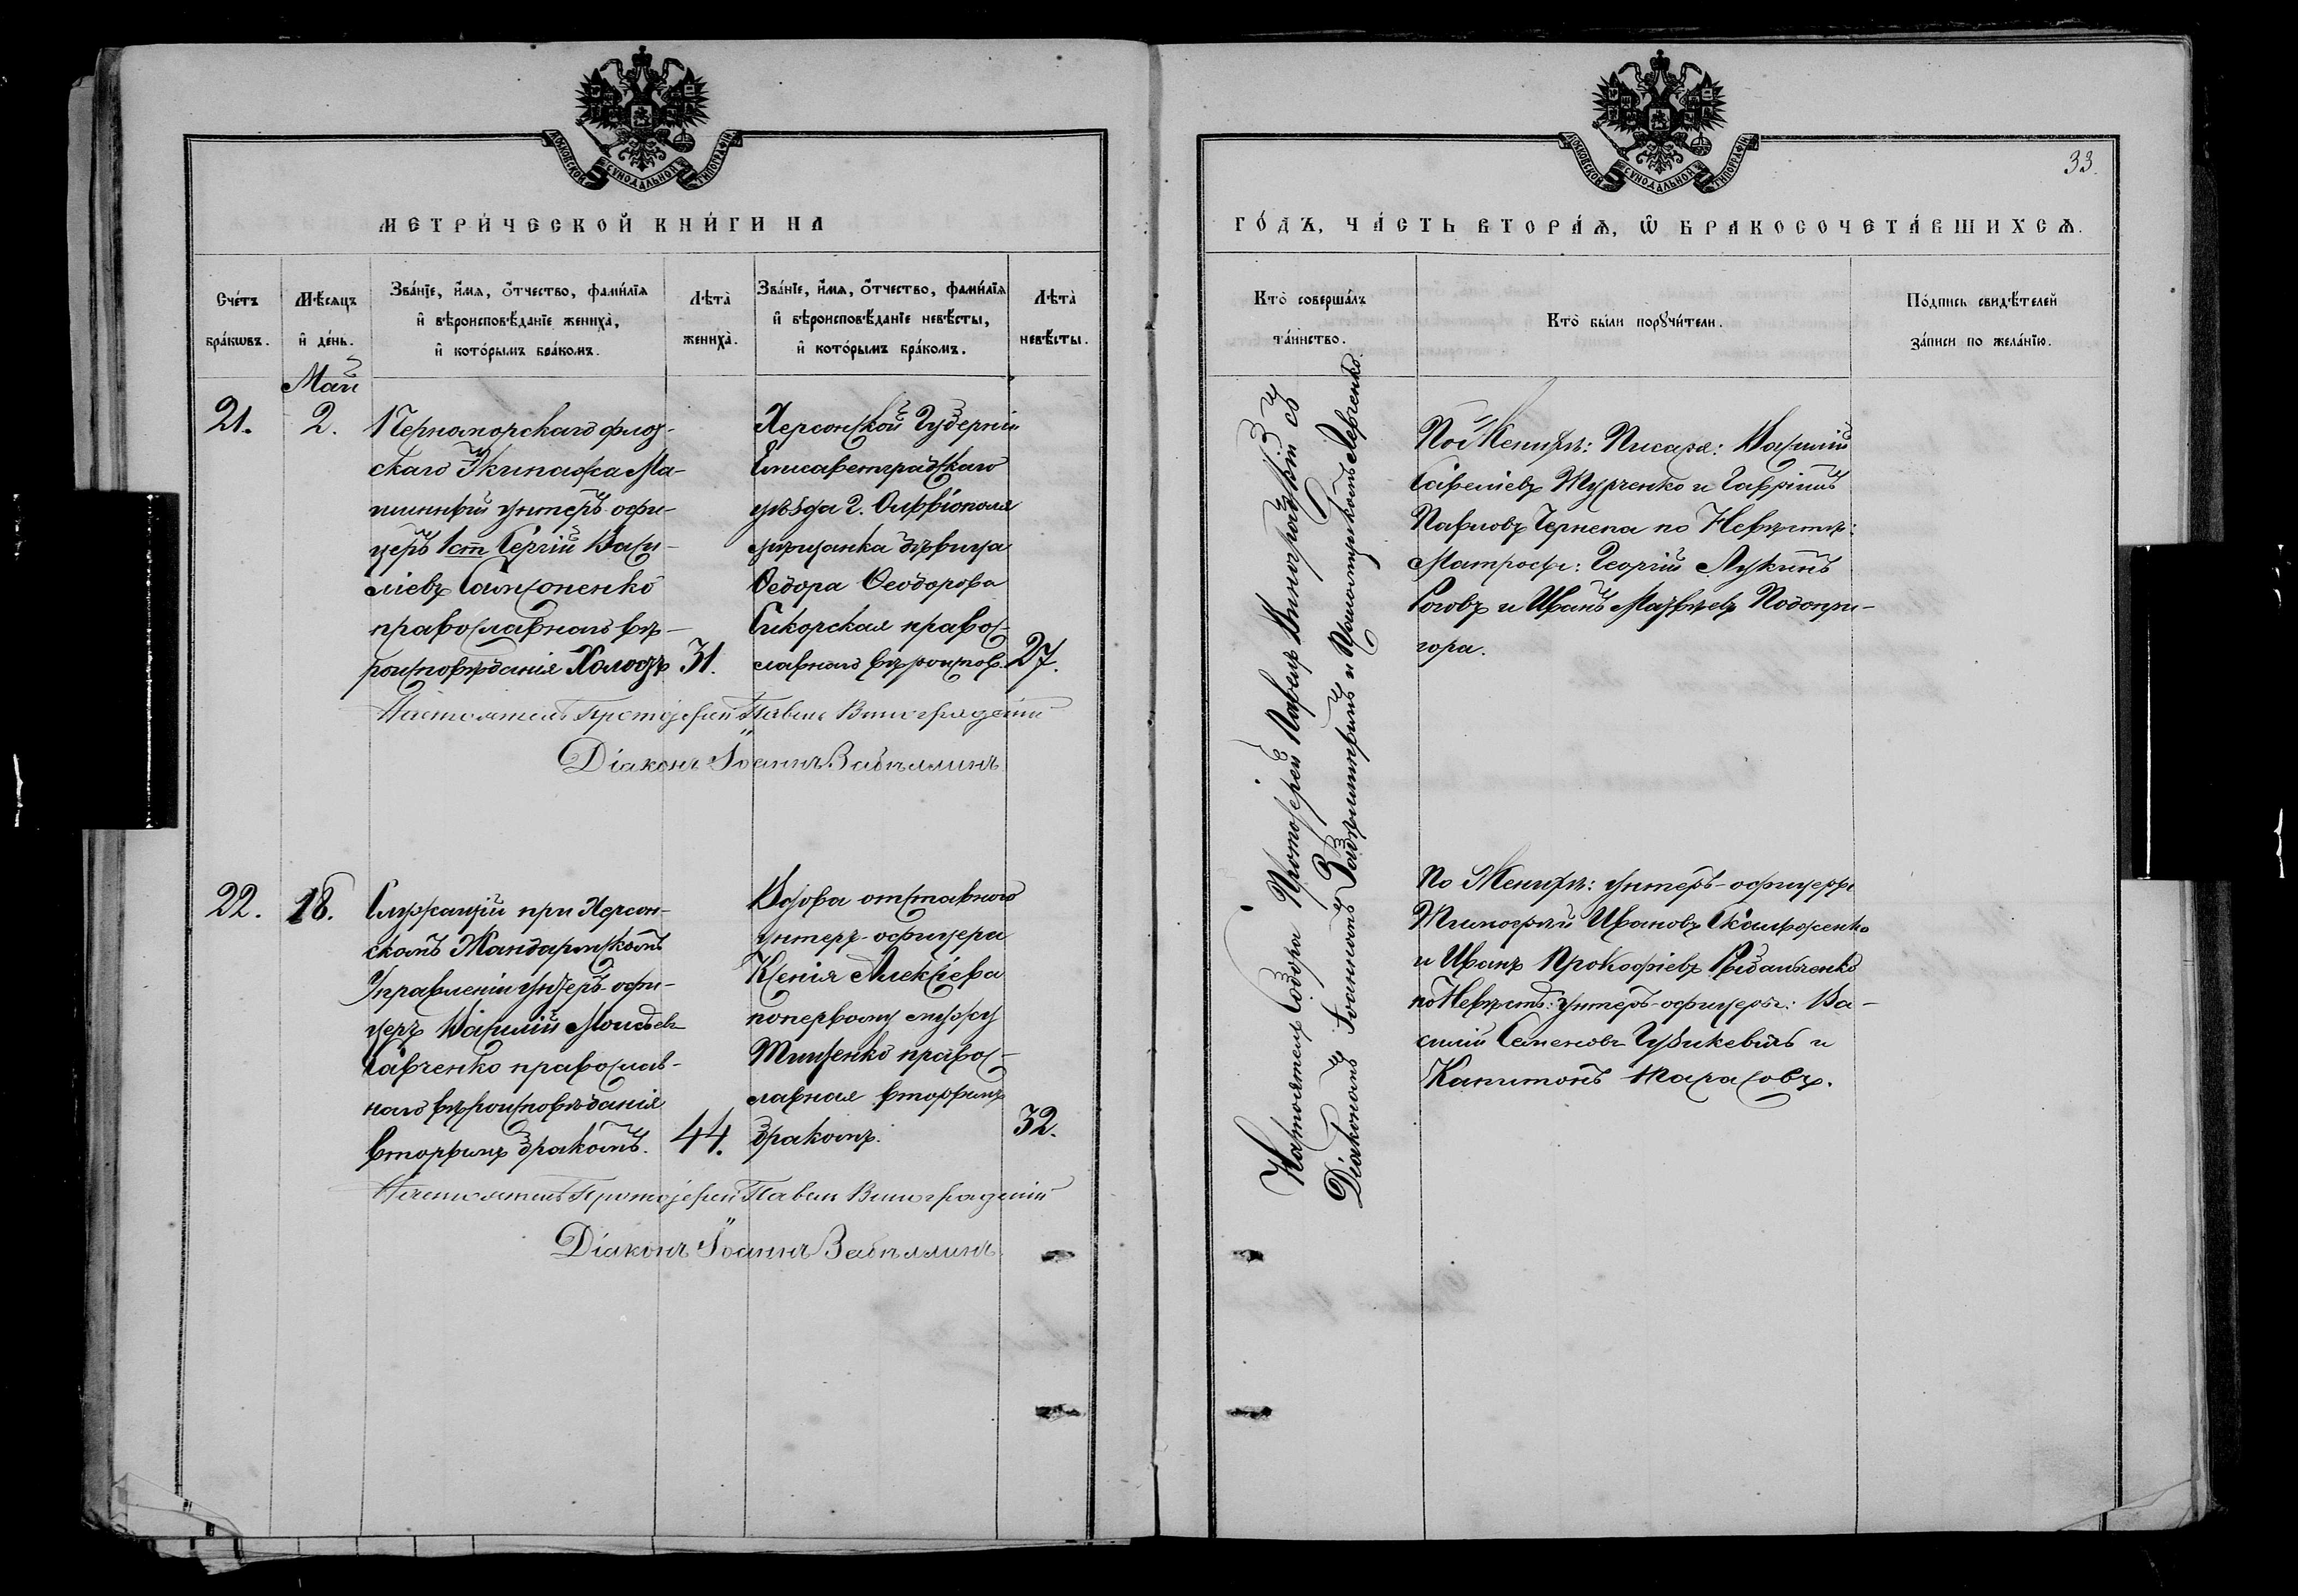 МОСКОВСКОЙ СѴНОДАЛЬНОЙ ТИПОГРАФІИ
МЕТРИ́ЧЕСКОЙ КНИ́ГИ НА
Сче́тъ бра́кѡвъ.
Мѣ́сяцъ и҆ де́нь.
Зва́нїе, и҆́мѧ, ѻ҆́тчество, фами́лїѧ
и҆ вѣроисповѣ́данїе жениха̀,
и҆ кото́рымъ бра́комъ.
Лѣта̀ жениха̀.
Зва́нїе, и҆́мѧ, ѻ҆́тчество, фами́лїѧ
и҆ вѣроисповѣ́данїе невѣ́сты,
и҆ кото́рымъ бра́комъ.
Лѣта̀ невѣ́сты.
Май
21.
2.
Черноморскаго флот-
скаго Экипажа Ма-
шинный унтеръ-офи-
церъ 1 ст Сергій Васи-
ліевъ Самсоненко
православнаго вѣ-
роисповѣданія Холостъ
31.
Херсонской Губерніи
Елисаветградскаго
уѣзда г. Ольвіополя
мѣщанка дѣвица
Ѳедора Ѳеодорова
Сикорская право-
славнаго вѣроиспов.
27.
Настоятель Протоіерей Павелъ Виноградскій
Діаконъ Іоаннъ Забѣллинъ
22.
18.
Служащій при Херсон-
скомъ Жандармскомъ
Управленіи унтеръ-офи-
церъ Василій Моисѣевъ
Савченко православ-
наго вѣроисповѣданія
вторымъ бракомъ.
44.
Вдова отставного
унтеръ-офицера
Ксенія Алексіева
по первому мужу
Тищенко право-
славная вторымъ
бракомъ.
32.
Настоятель Протоіерей Павелъ Виноградскій
Діаконъ Іоаннъ Забѣллинъ
МОСКОВСКОЙ СѴНОДАЛЬНОЙ ТИПОГРАФІИ
33.
ГО́ДЪ, ЧА́СТЬ ВТОРА́Ѧ, Ѡ҆ БРАКОСОЧЕТА́ВШИХСѦ.
Кто̀ соверша́лъ
та́инство.
Кто̀ бы́ли порꙋчи́тели.
По́дпись свидѣ́телей
за́писи по жела́нїю.
Настоятель Собора Протоіерей Павелъ Виноградскій съ
Діакономъ Іоанномъ Забѣллинымъ и Псаломщикомъ Левченко.
По Женихѣ: Писаря: Василій
Савеліевъ Журченко и Гавріилъ
Павловъ Черпепа по Невѣстѣ:
Матросы: Георгій Лукинъ
Роговъ и Иванъ Матвѣевъ Подопри-
гора.
По Женихѣ: унтеръ-офицеры
Тимофей Ивановъ
и Иванъ Прокофіевъ
по Невѣстѣ: унтеръ-офицеры: Ва-
силій Семеновъ Губикевичъ и
Капитонъ Тарасовъ.